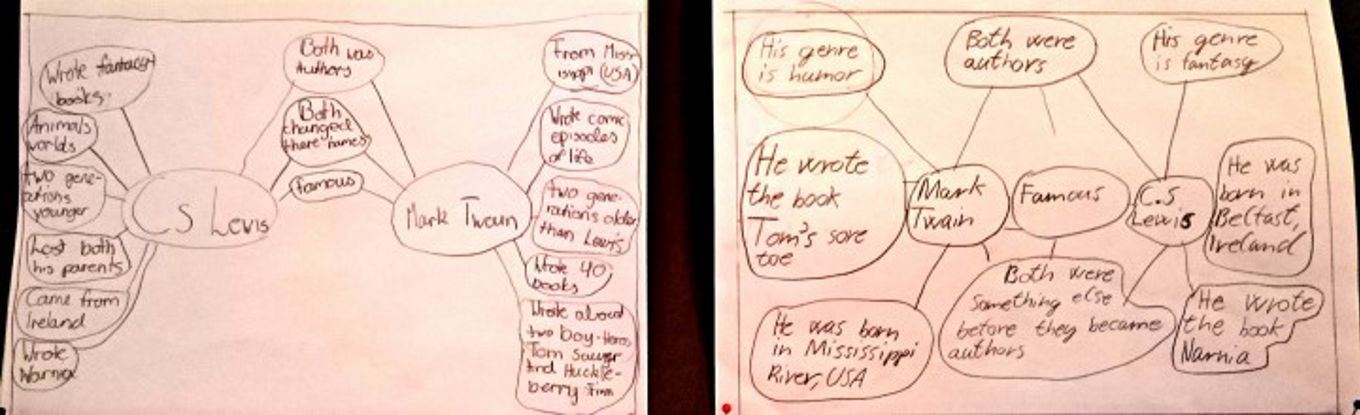 Wrote fantacy
books.
Animals
worlds
Two gene-
rations
younger
Lost both
his parents
Came from
Ireland
Wrote
Narnia
C S Lewis
Both was
Authors
Both
changed
there names
famous
Mark Twain
From Miss
issippi (USA)
Wrote comic
episodes
of life
Two gene-
rations older
than Lewis
Wrote 40
books
Wrote about
two boy-Heros
Tom Sawyer
And Huckle-
berry Finn
His genre
is humor
Both were
authors
His genre
is fantasy
He wrote
the book
Tom's sore
toe
Mark
Twain
Famous
C.S
Lewis
He was
born in
Belfast,
Ireland
He was born
in Mississippi
River, USA
Both were
Something else
before they became
authors
He wrote
the book
Narnia